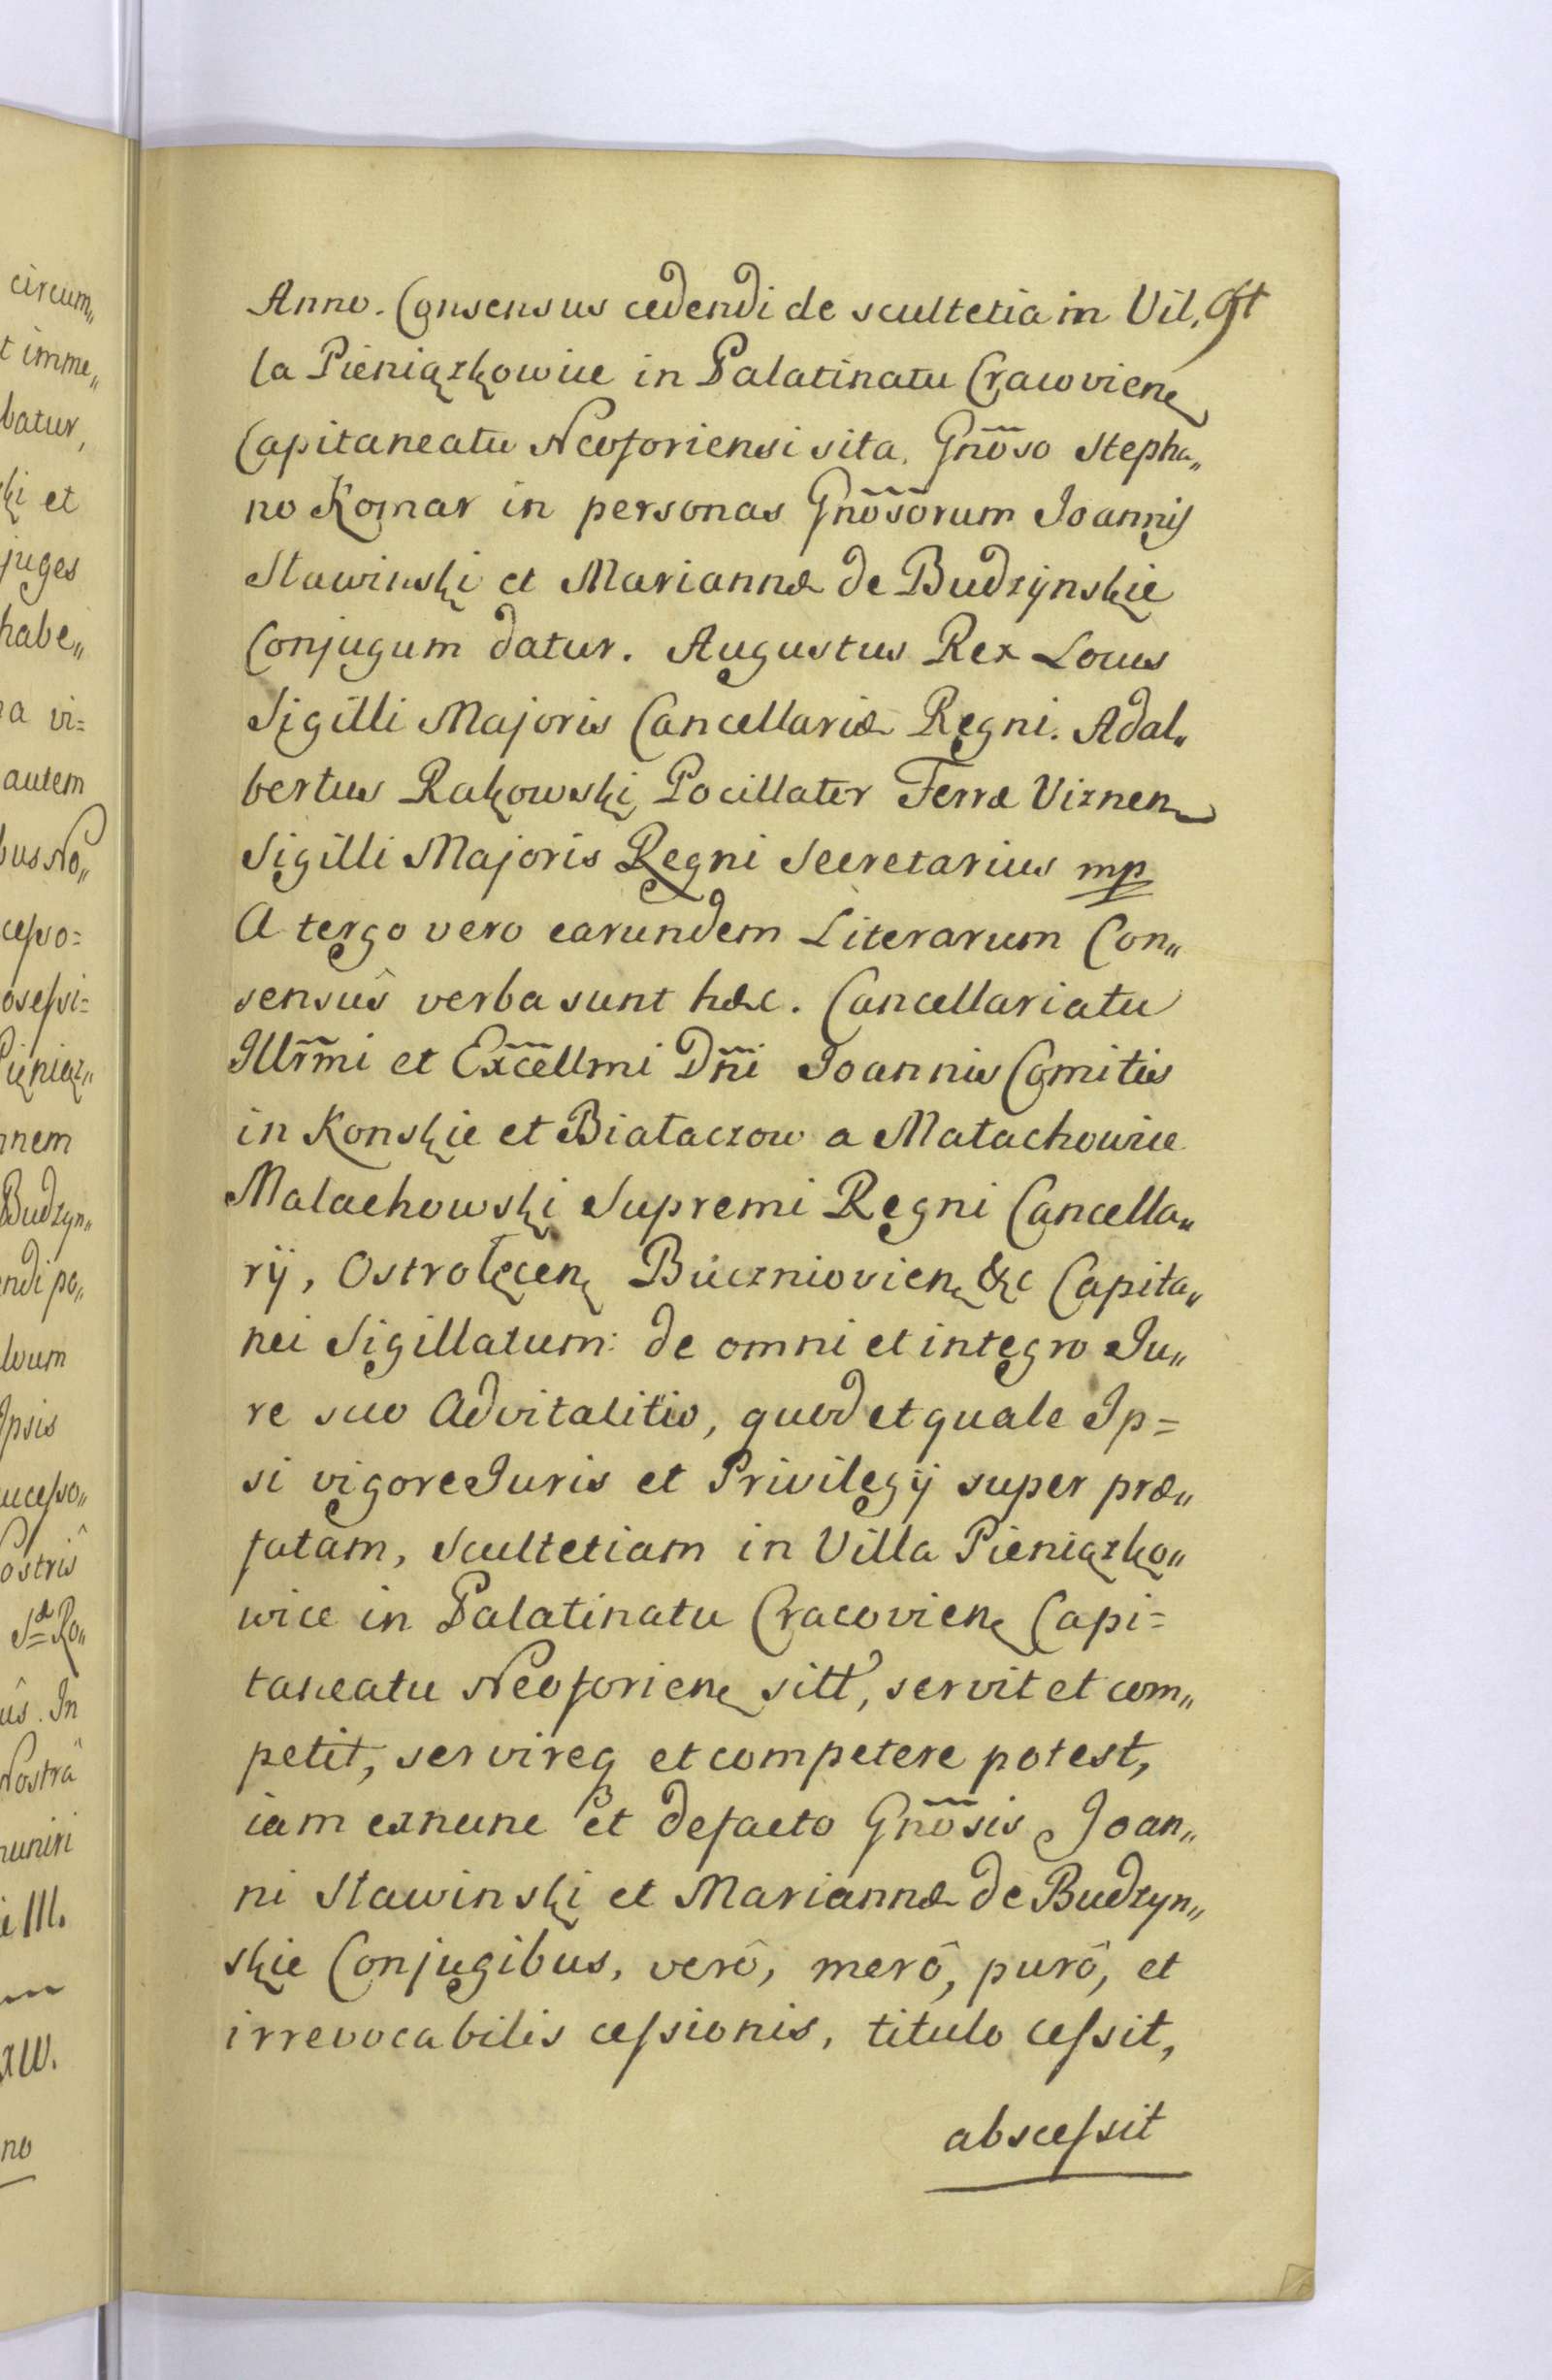 circum„
t imme„
batur,
ki et
juges
habe„
a vi=
autem
bus No„
cesso=
osessi=
Pieniąz„
nnem
Budzyn„
endi po„
lvum
Ipsis
ucesso„
ostris
ûs. In
Nostrâ
muniri
III.
no
Anno. Consensus cedendi de scultetia in Vil,
la Pieniązkowice in Palatinatu Cracovien
Capitaneatu Neoforiensi sita. Gño͠so Stepha„
no Komar in personas Gño͠so͠rum Joannis
Stawinski et Mariannæ de Budzÿnskie
Conjugum datur. Augustus Rex Locus
Sigilli Majoris Cancellariæ Regni. Adal„
bertus Rakowski Pocillator Terræ Viznen
Sigilli Majoris Regni Secretarius mp
A tergo vero earundem Literarum Con„
sensûs verba sunt hæc. Cancellariatu
Illr̃m̃i et Exc̃ellmi Dñi Joannis Comitis
in Konskie et Białaczow a Małachowice
Malachowski Supremi Regni Cancella„
rÿ, Ostrołęcen Buczniovien &c Capita„
nei Sigillatum: de omni et integro Ju„
re suo Advitalitio, quod et quale Ip=
si vigore Juris et Privilegÿ super præ„
fatam, Scultetiam in Villa Pieniązko„
wice in Palatinatu Cracovien Capi=
taneatu Neoforien sitt, servit et com„
petit, servireq et competere potest,
iam exnunc et defacto Gño͠sis Joan„
ni Stawinski et Mariannæ de Budzyn„
skie Conjugibus, verô, merô, purô, et
irrevocabilis cessionis, titulo cessit,
abscessit